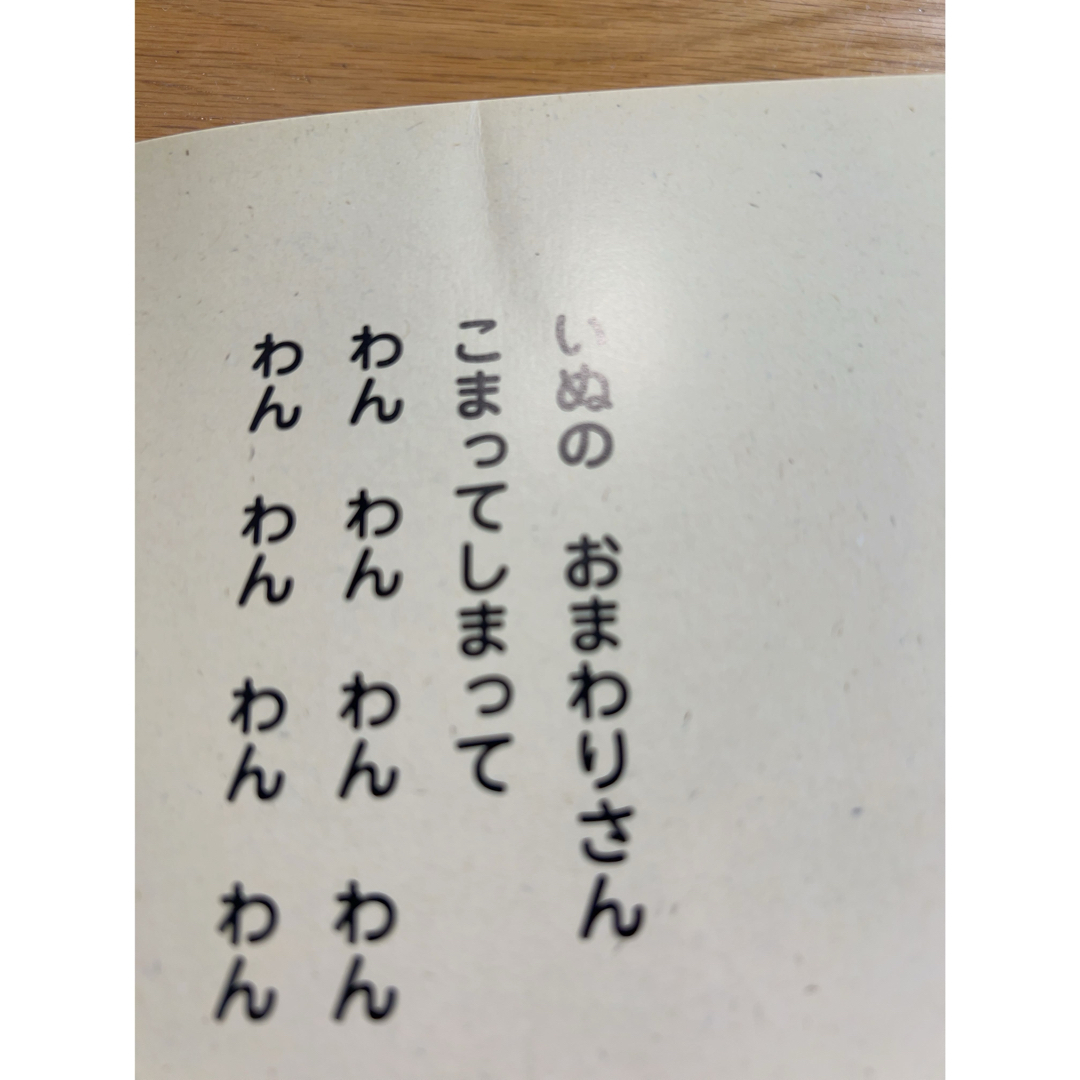 いぬの　おまわりさん
こまってしまって
わん　わん　わん　わん
わん　わん　わん　わん